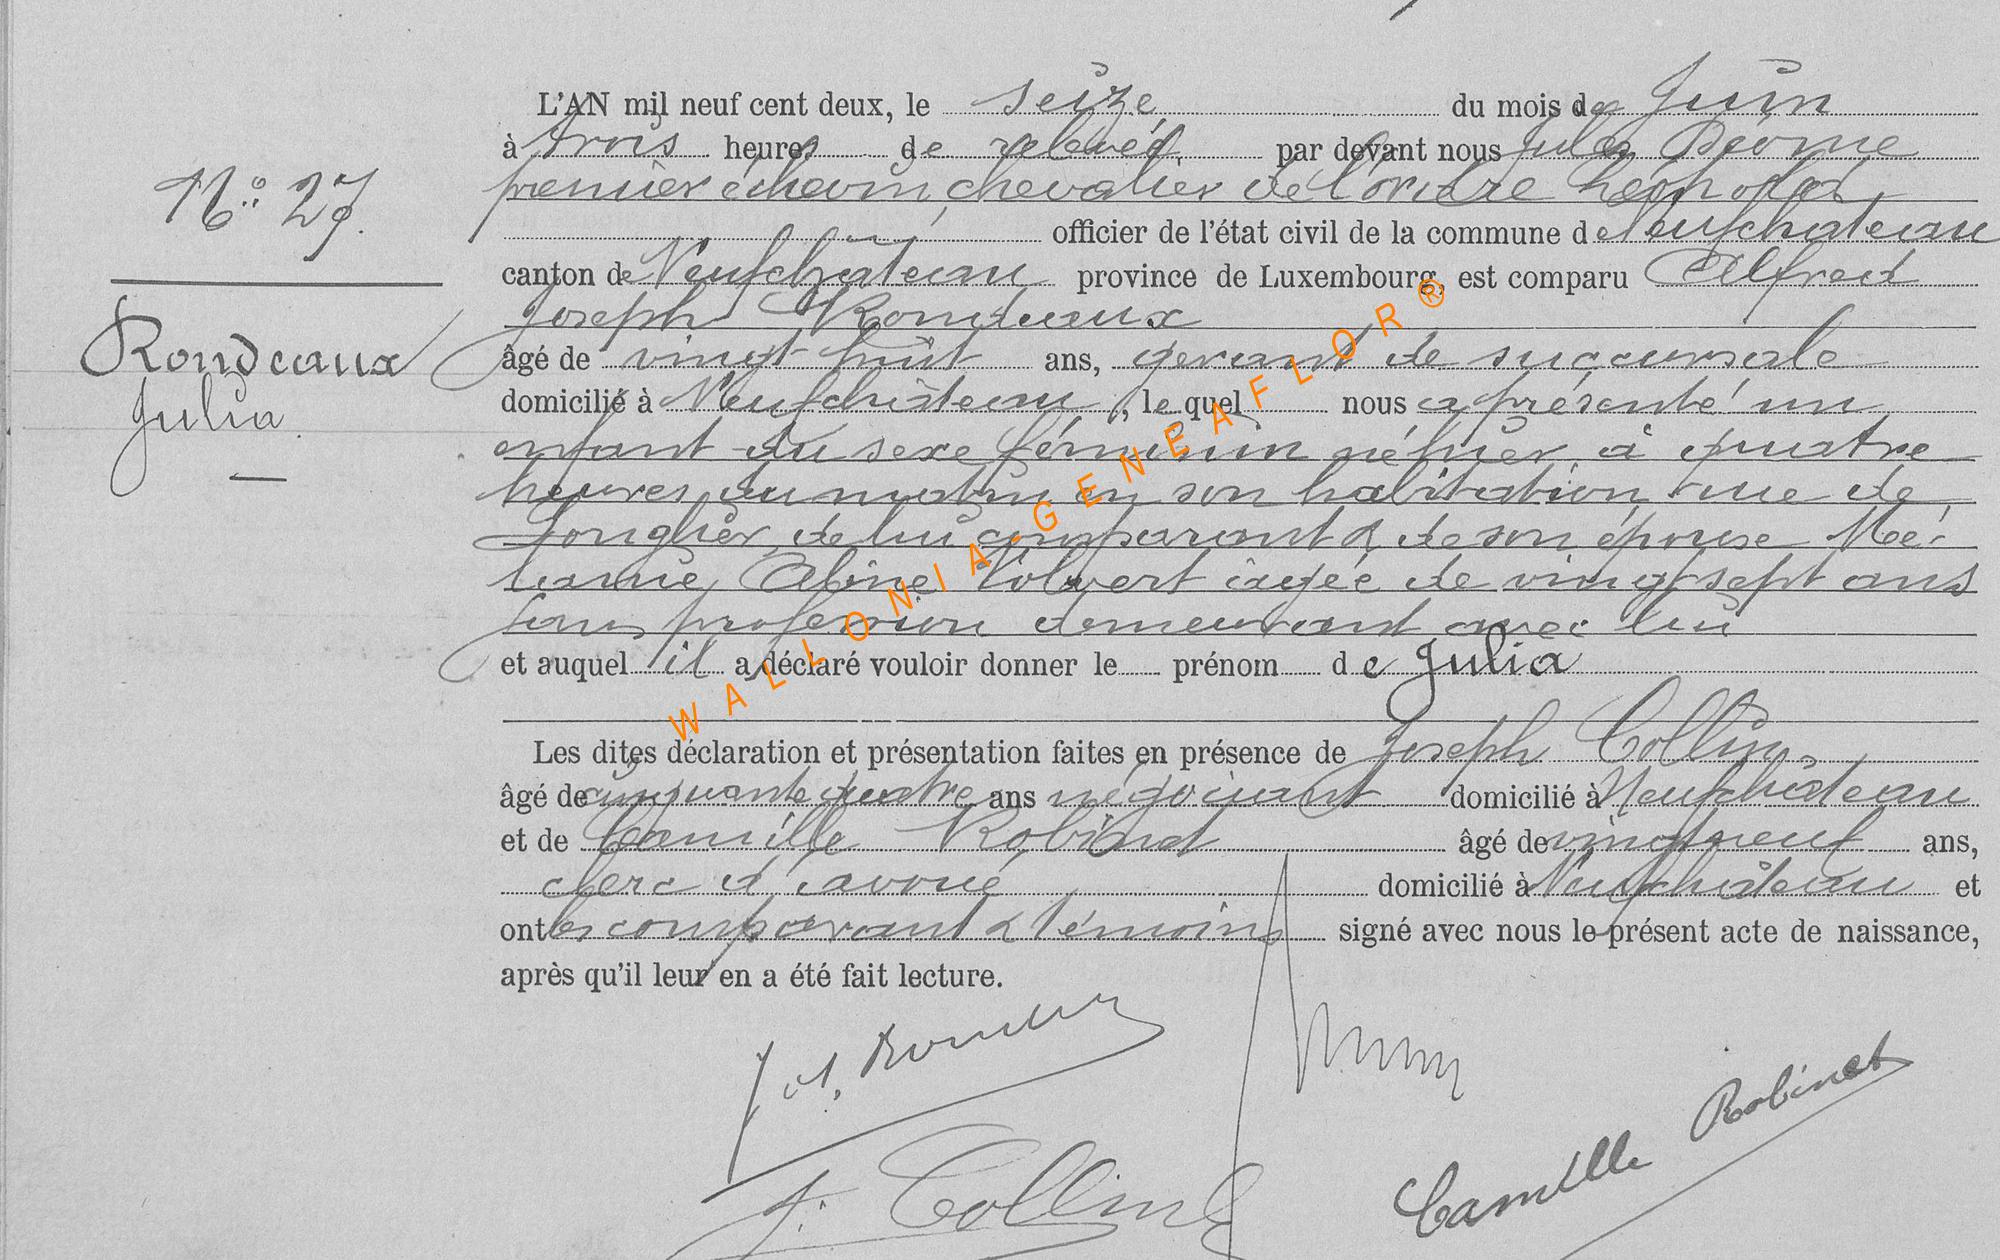 L'AN mil neuf cent deux, le seize du mois de Juin
à trois heures de relevée, par devant nous Jules
premier échevin, chevalier de l'ordre Léopold,
officier de l'état civil de la commune de Neufchateau
canton de Neufchâteau province de Luxembourg, est comparu Alfred
Joseph Rondeaux
âgé de vingt huit ans, gerant de succursale
domicilié à Neufchâteau, le quel nous a présenté un
enfant du sexe féminin né hier à quatre
heures du matin en son habitation rue de
Longlier, de lui comparant & de son épouse Mé-
lanie, Aline ayée de vingt-sept ans
sans profession demeurant avec lui
et auquel il a déclaré vouloir donner le prénom de Julia
Les dites déclaration et présentation faites en présence de Joseph Collin,
âgé de cinquante quatre ans négociant domicilié à Neufchâteau
et de Camille Robinet âgé de vingt neuf ans,
clerc d'avoué domicilié à Neufchâteau et
ont les comparant & témoins signé avec nous le présent acte de naissance,
après qu'il leur en a été fait lecture.
N° 27.
Rondeaux
Julia.
WALLONIA-GENEAFLOR®
J. Collin
Camille Robinet